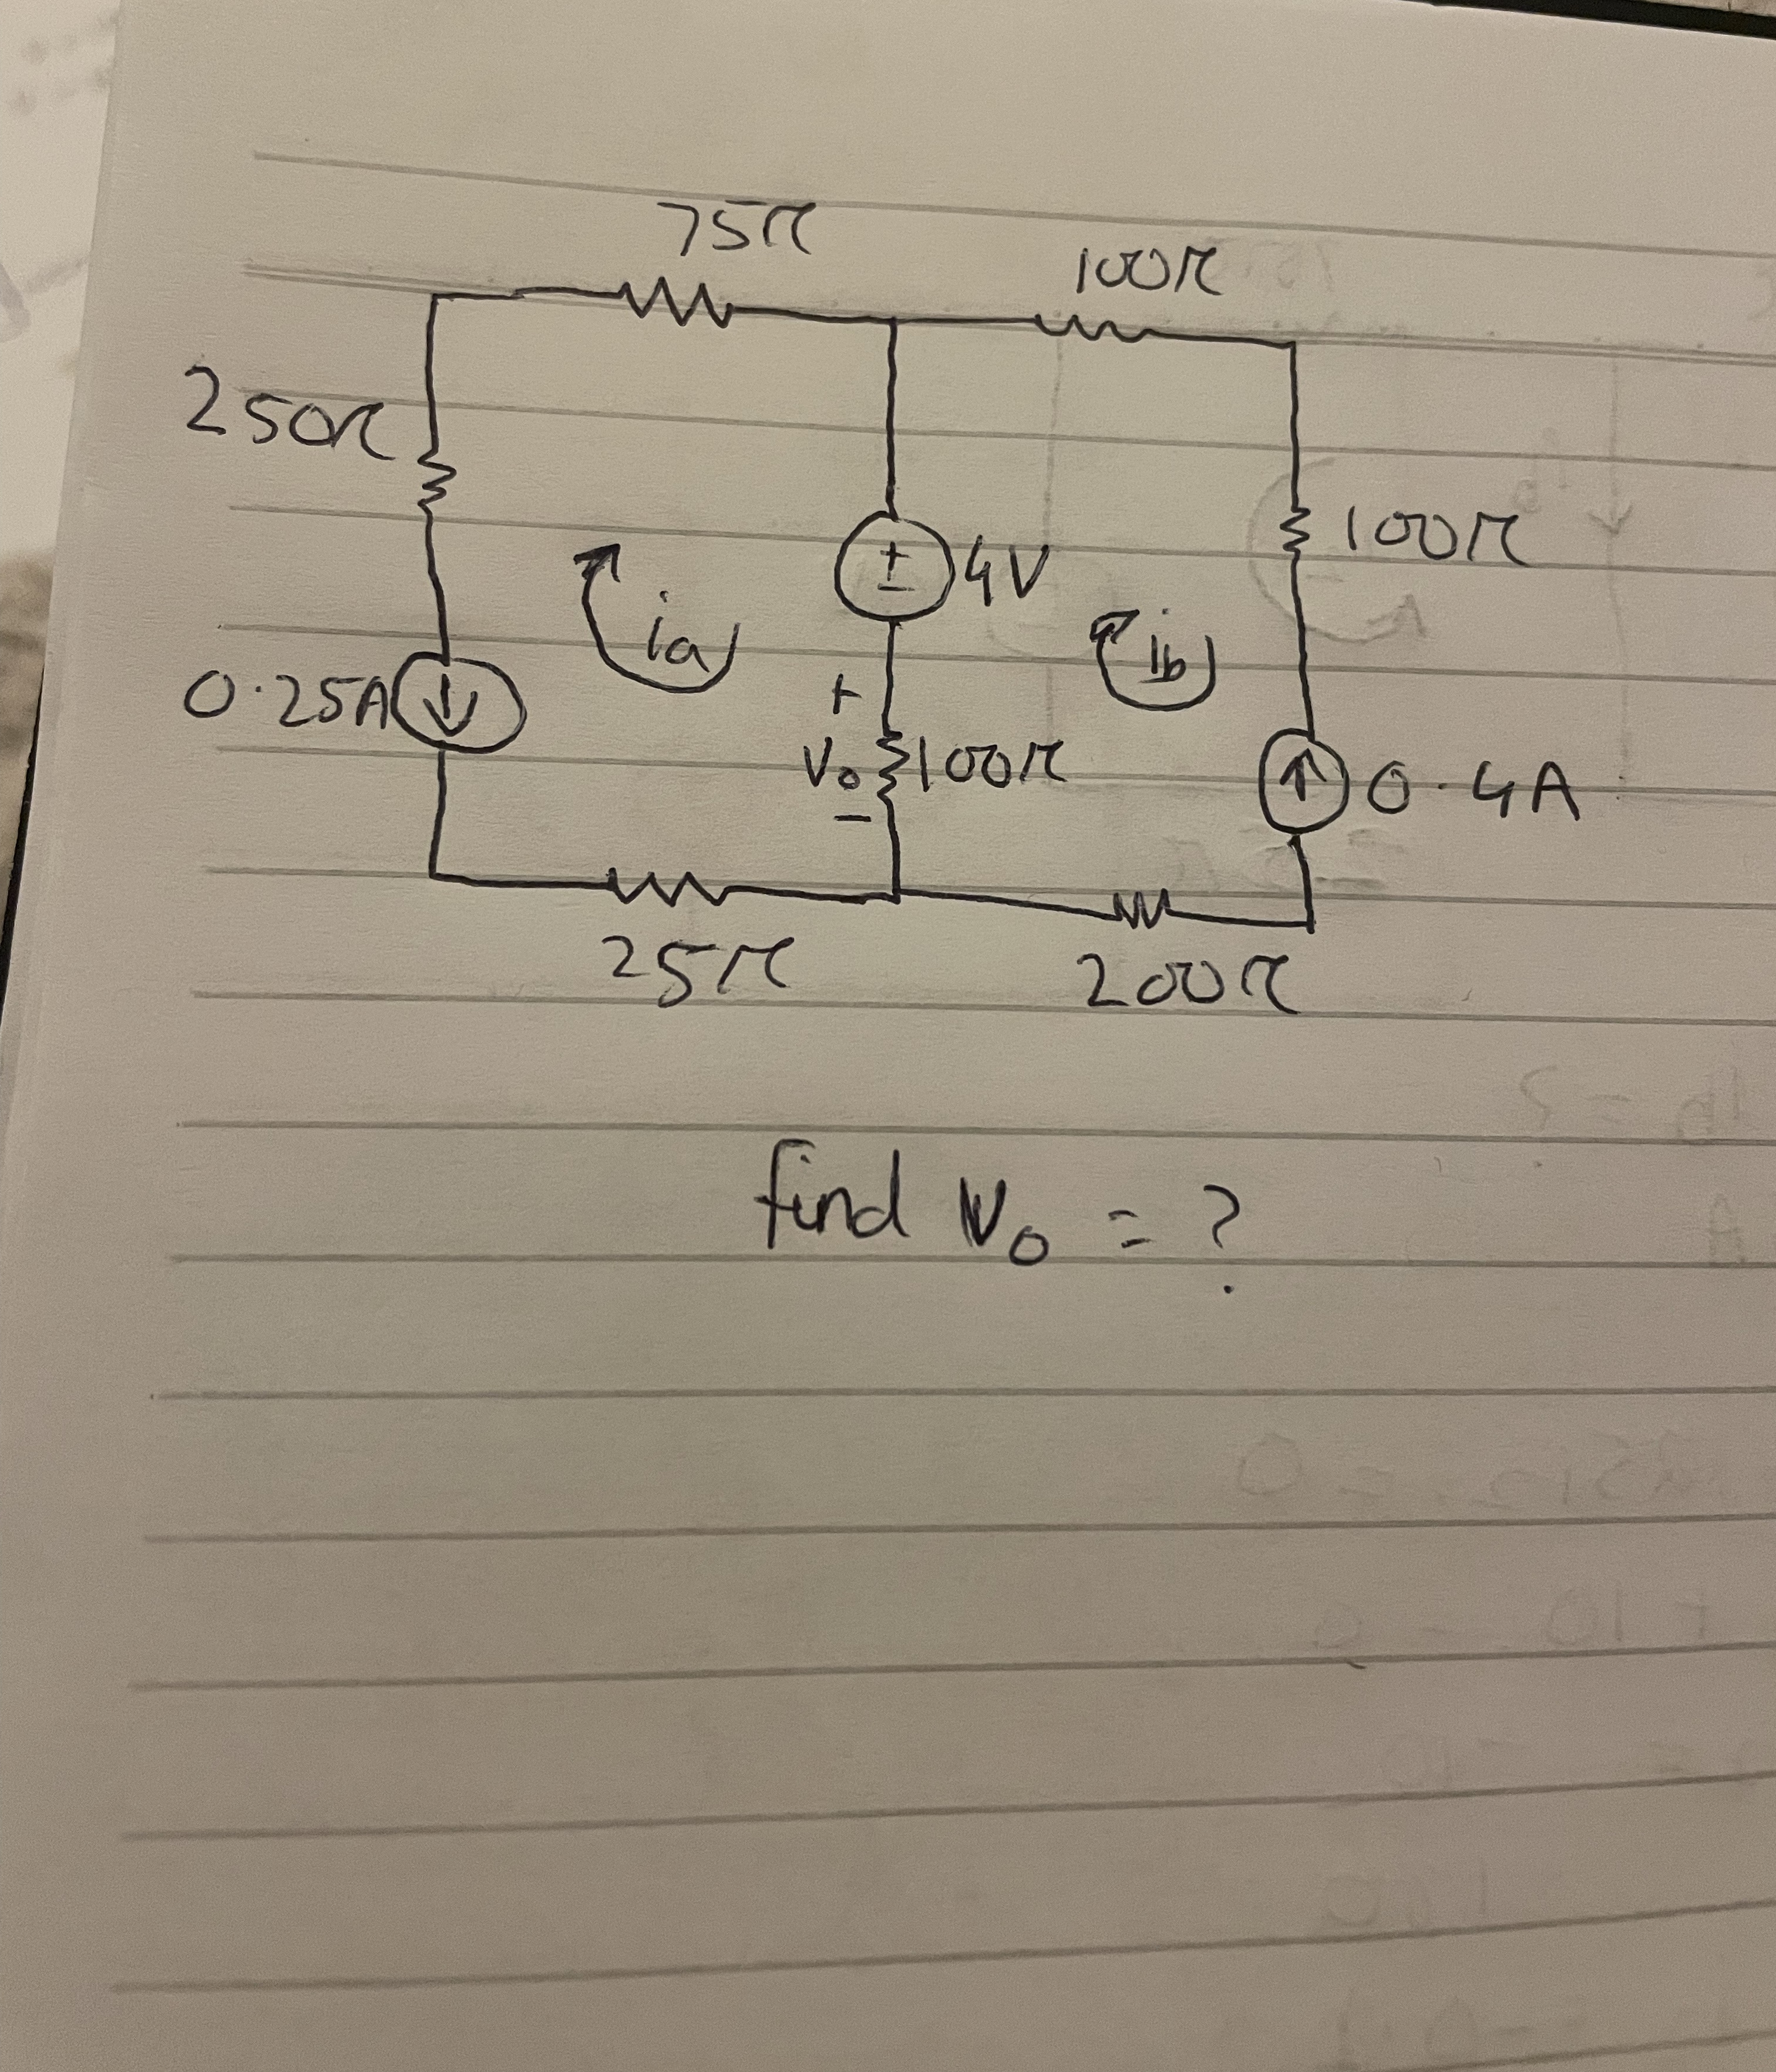 75Ω
100Ω
250Ω
ia
± 4V
ib
100Ω
0.25A
+
Vo 100Ω
−
0.4A
25Ω
200Ω
find Vo = ?